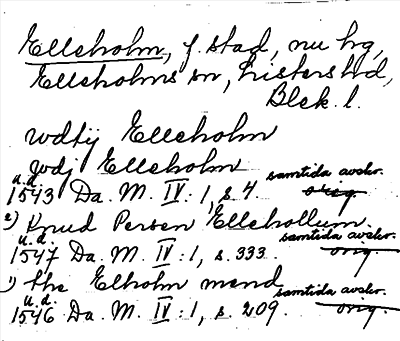 Elleholm, f. stad, nu hg,
Elleholms sn, Listers hd,
Blek. l.
wdtij Elleholm
wdj Elleholm
u.d. samtida avskr.
1543 Da. M. IV:1, s. 4 orig.
2) Knud Persen Ellehollum
u.d. samtida avskr.
1547 Da. M. IV:1, s. 333. orig.
1) the Elholm mend
u.d. samtida avskr.
1546 Da. M. IV:1, s. 209. orig.